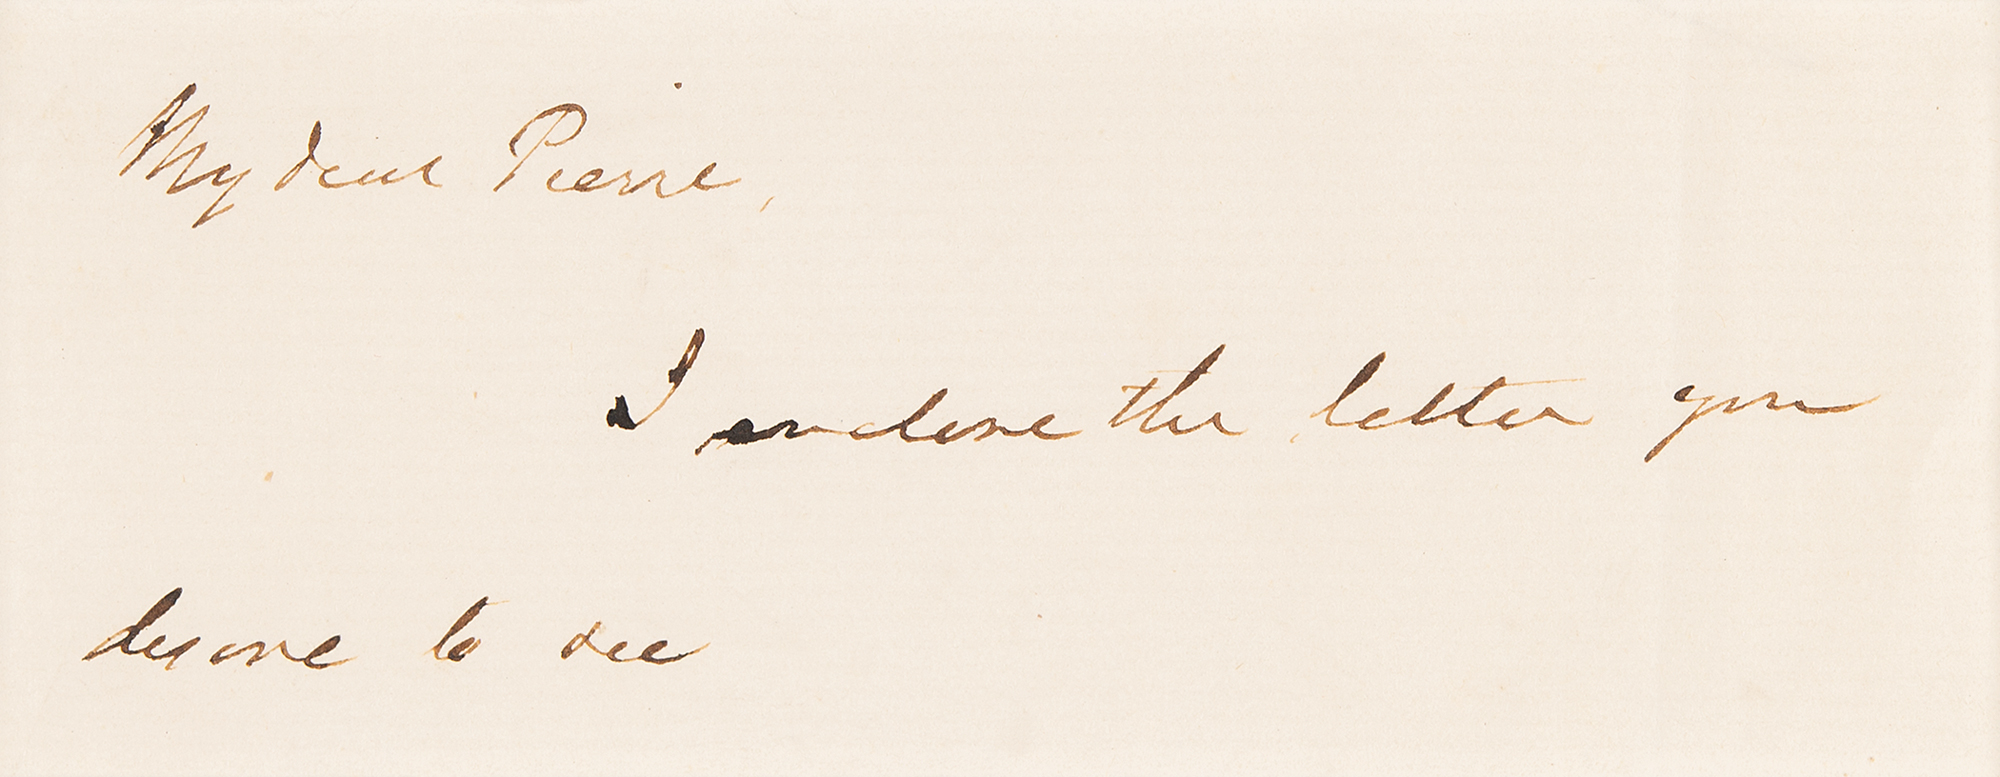 My dear Pierre,
I enclose the letter you
desire to see